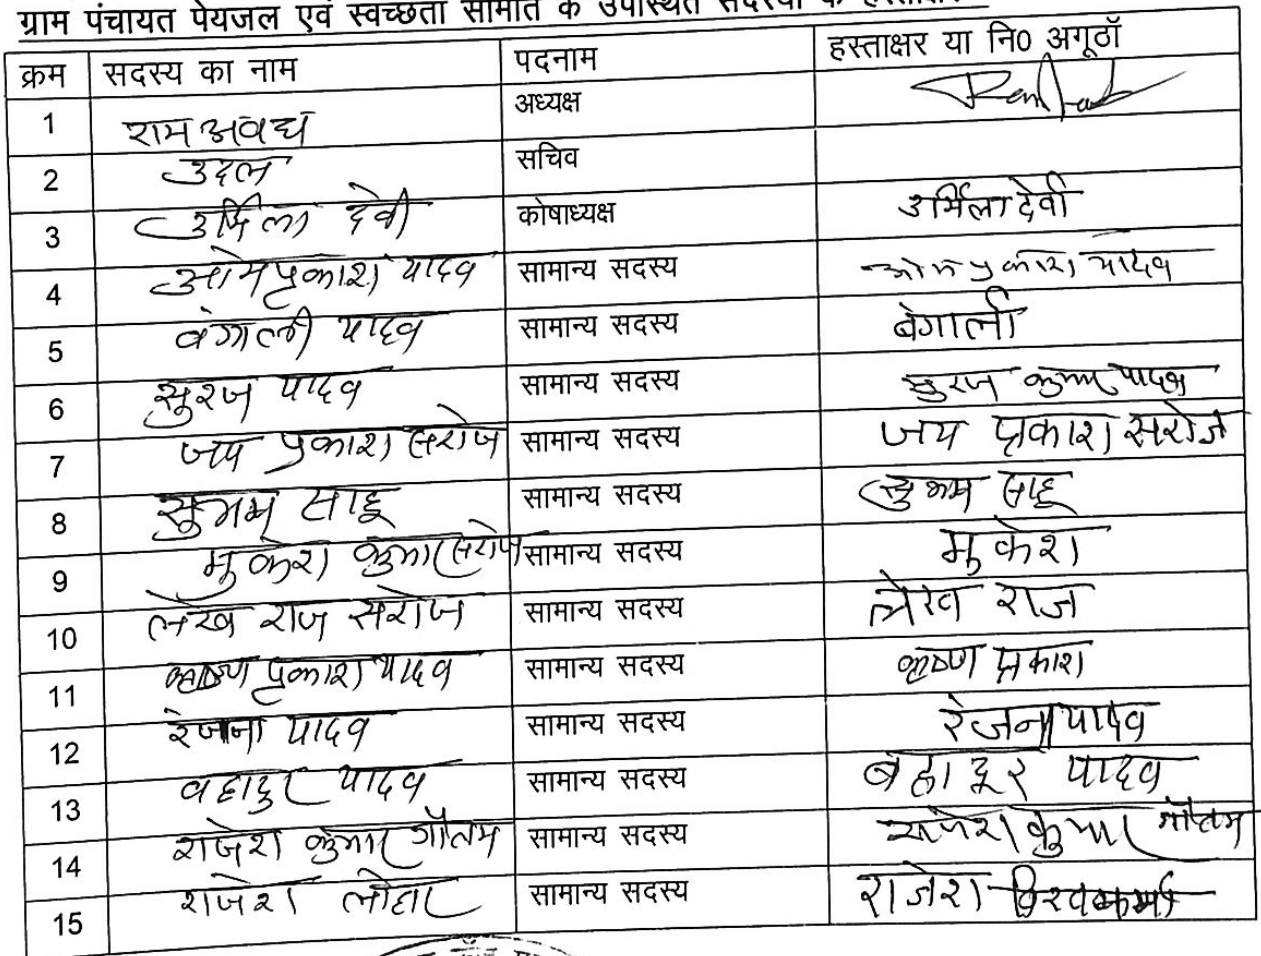 ग्राम पंचायत पेयजल एवं स्वच्छता समिति के उपस्थित सदस्यों के हस्ताक्षर
क्रम सदस्य का नाम पदनाम हस्ताक्षर या नि0 अगूठॉ
1 राम अवध अध्यक्ष
2 उदल सचिव
3 उर्मिला देवी कोषाध्यक्ष उर्मिला देवी
4 ओमप्रकाश यादव सामान्य सदस्य ओमप्रकाश यादव
5 बंगाली यादव सामान्य सदस्य बंगाली
6 सुरज यादव सामान्य सदस्य सुरज कुमार यादव
7 जय प्रकाश सरोज सामान्य सदस्य जय प्रकाश सरोज
8 सुभम साहू सामान्य सदस्य सुभम साहू
9 मुकेश कुमार सरोज सामान्य सदस्य मुकेश
10 लेख राज सरोज सामान्य सदस्य लेख राज
11 कृष्ण प्रकाश यादव सामान्य सदस्य कृष्ण प्रकाश
12 रंजना यादव सामान्य सदस्य रंजना यादव
13 वहादुर यादव सामान्य सदस्य बहादूर यादव
14 राजेश कुमार गौतम सामान्य सदस्य राजेश कुमार गौतम
15 राजेश लोहार सामान्य सदस्य राजेश विश्वकर्मा